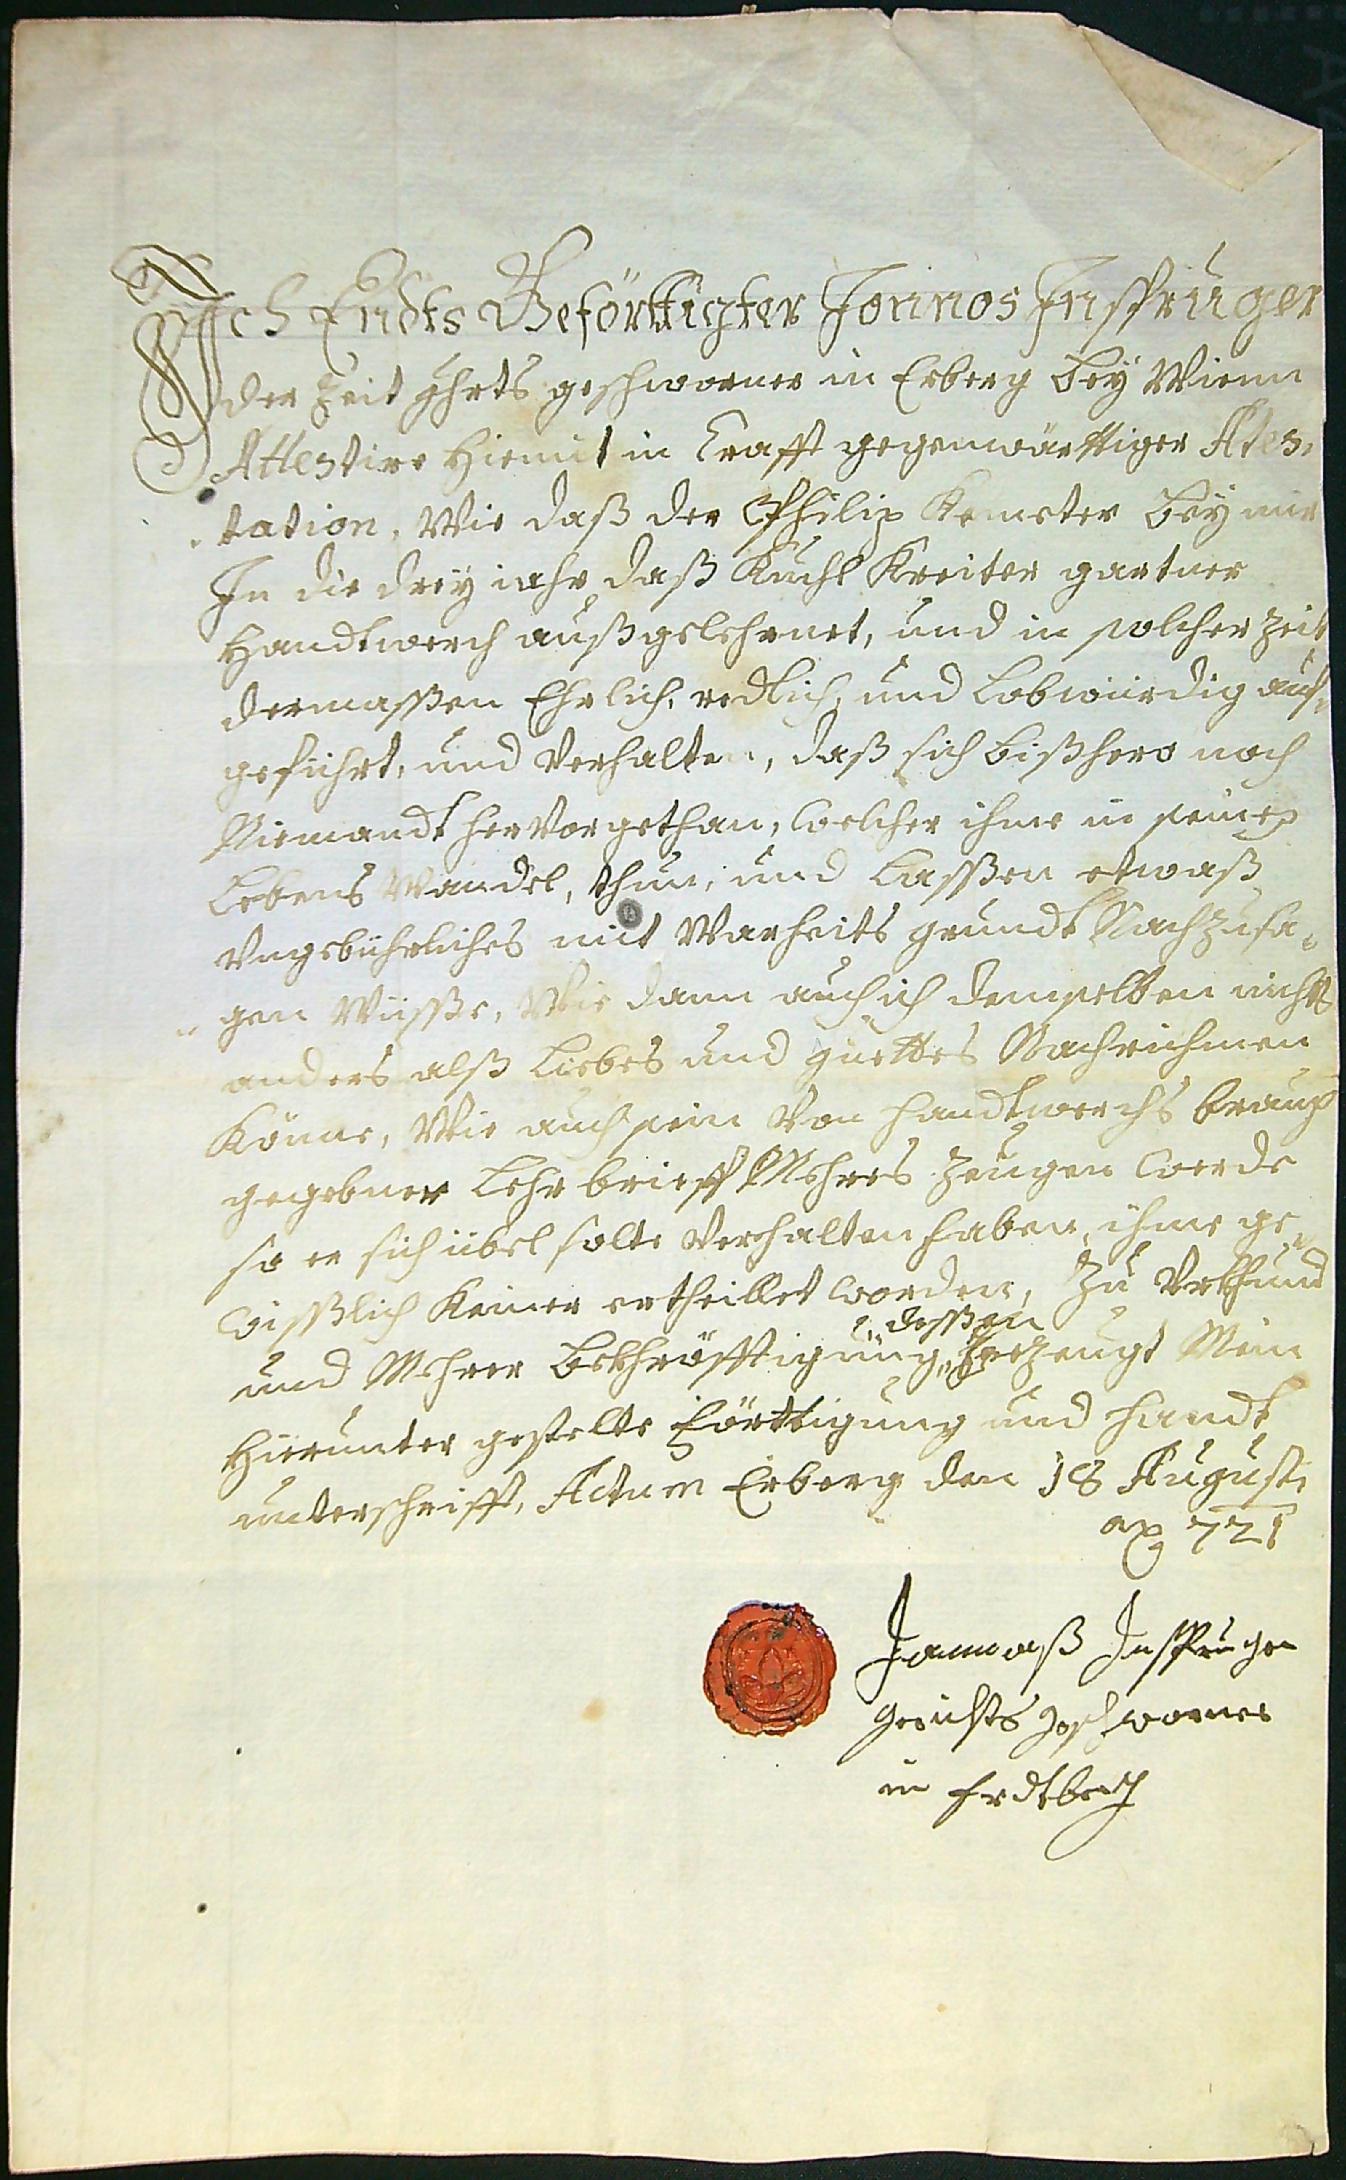 Ich Endts Geförttigter Jonnos Insprüger
der Zeit ghrts geschworner in Erberg bey Wienn
Attestire hiemit in Crafft gegenwärttiger Ates„
„tation, Wie daß der Philip Kemeter bey mir
In die drey iahr daß Kuchl Kreiter gartner
Handtwerch außgelehrnet, und in solcher Zeit
dermassen Ehrlich, redlich, und Lobwürdig auf„
geführt, und Verhalten, daß sich bißhero noch
Niemandt hervorgethan, welcher ihme in seinen
Lebens Wandel, thun, und Lassen etwaß
Vngebührliches mit Warheits grundt Nachzusa„
„gen Wüsse, Wie dann auch ich demselben nichts
anders alß Liebes und guettes Nachrühmen
Könne, Wie auch sein Von Handtwerchs
gegebner Lehr brieff Mehres Zeugen werde
so er sich übel solte Verhalten haben, ihme ge„
wisslich Keiner ertheillet worden, Zu Vrkhund
und Mehrer bekhräfftigung „dessen bezeugt Mein
hierunter gestelte Förttigung und Handt
unterschrifft, Actum Erberg den 18 August:
ao 721
Jannaß Inspruger
gerichts geschworner
in Erdtberg